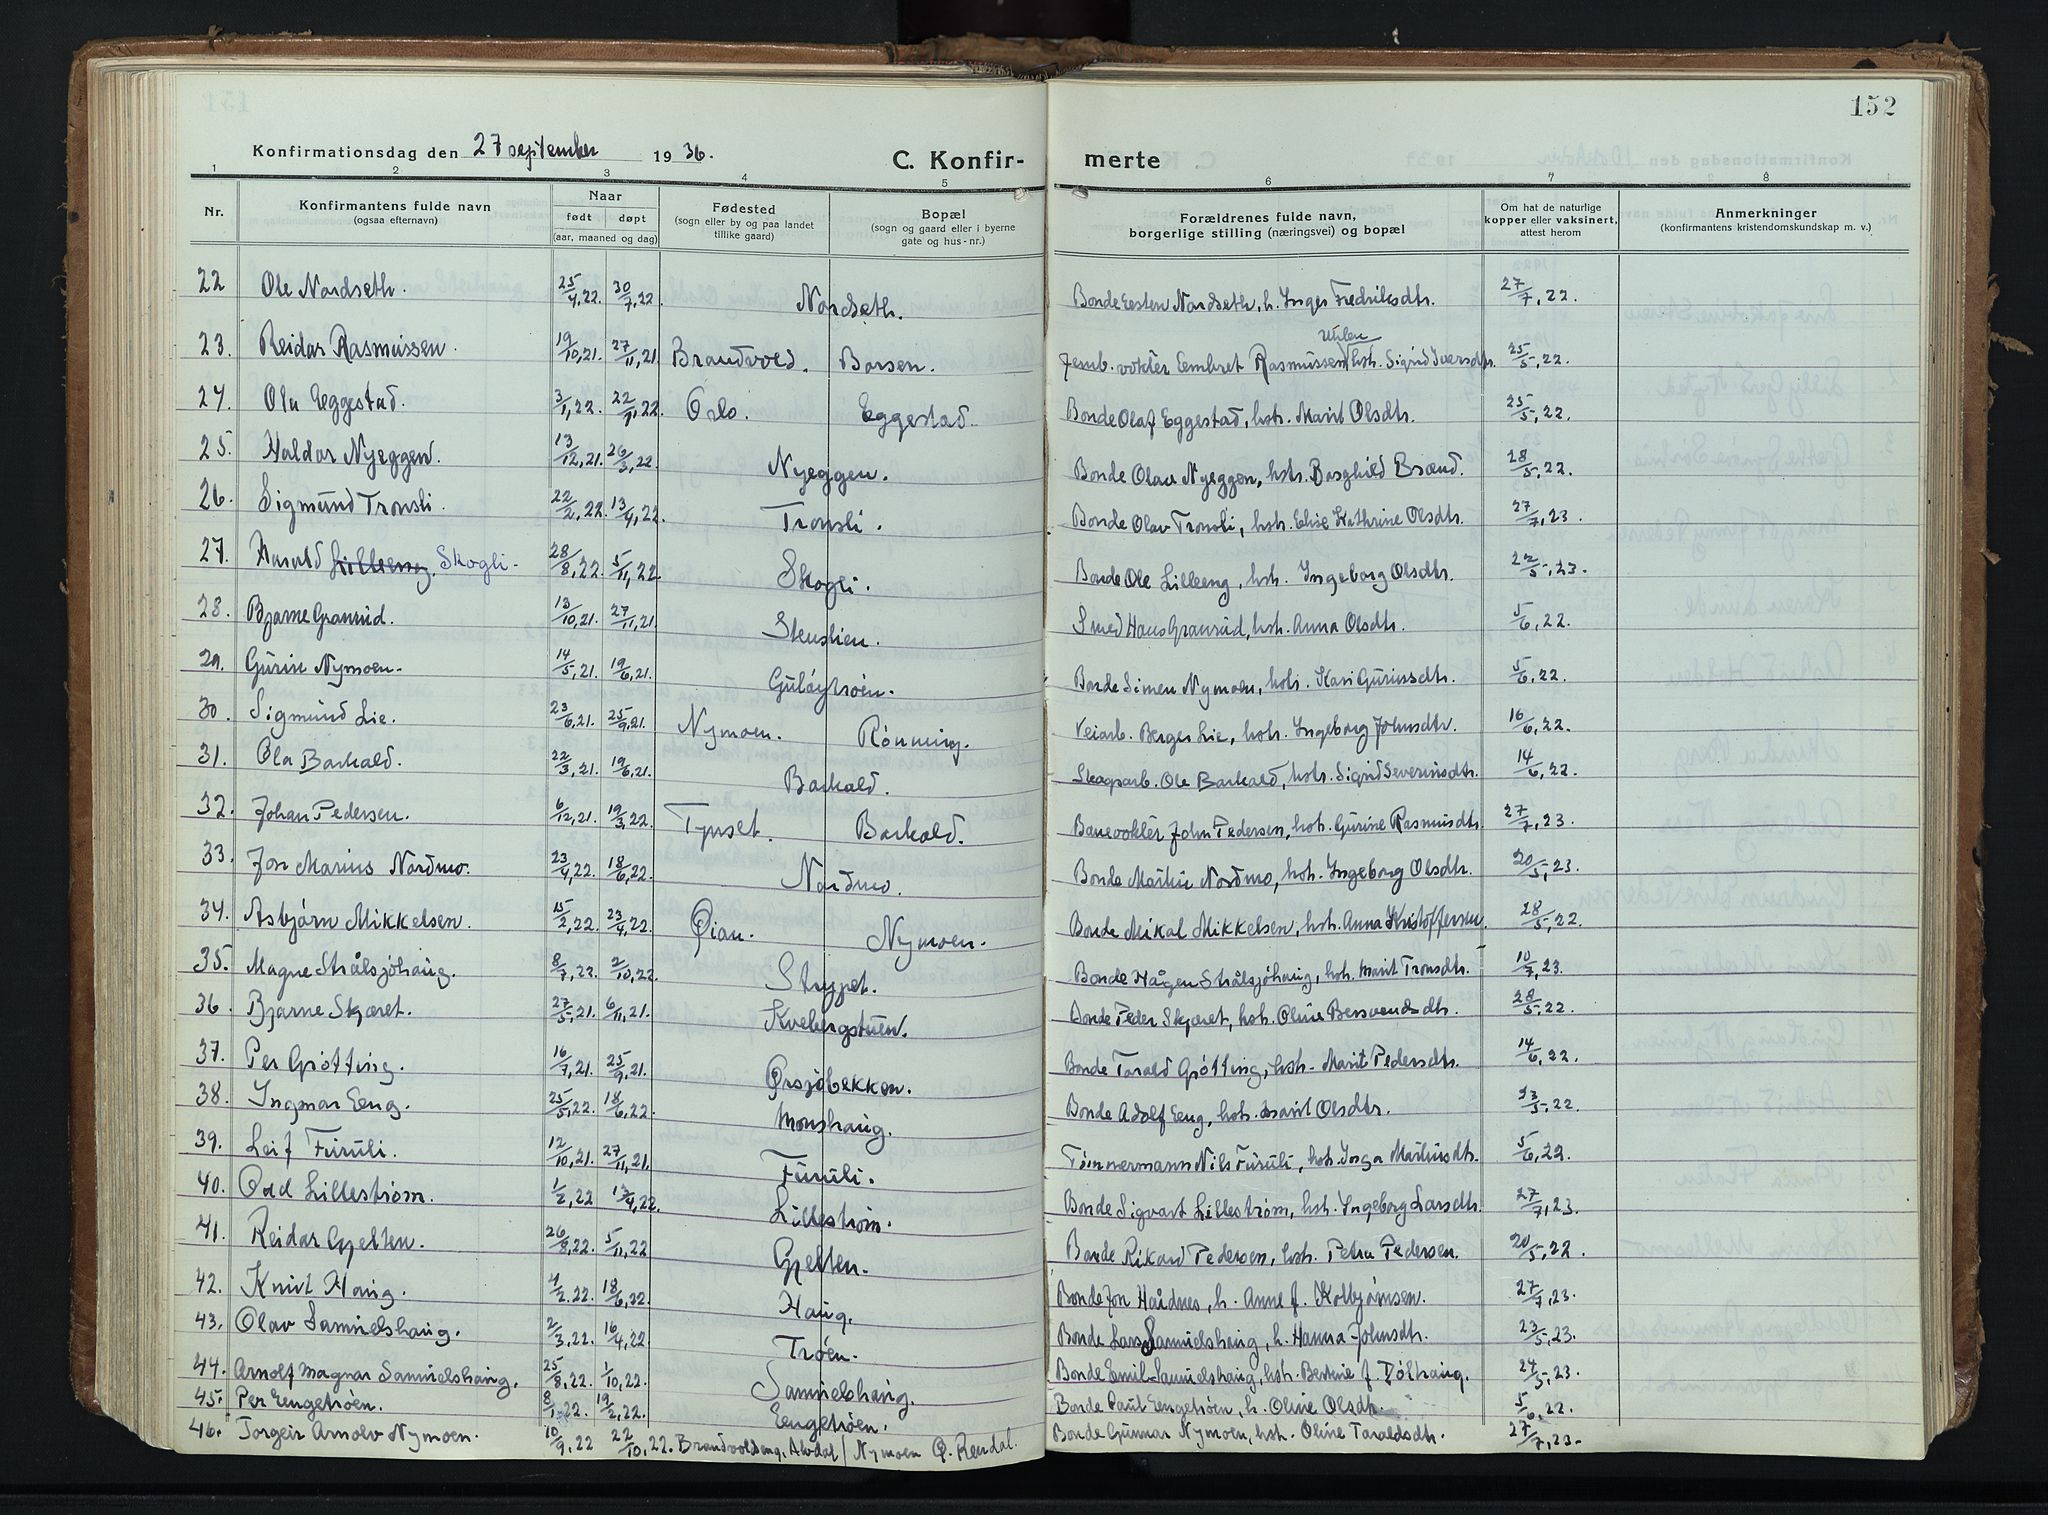 152
Konfirmationsdag den 27 september 1936.
C. Konfirmerte
1 2 3 4 5 6 7 8
Nr. Konfirmantens fulde navn (ogsaa efternavn) Naar født døpt (aar, maaned og dag) Fødested (sogn eller by og paa landet tillike gaard) Bopæl (sogn og gaard eller i byerne gate og hus-nr.) Forældrenes fulde navn, borgerlige stilling (næringsvei) og bopæl Om hat de naturlige kopper eller vaksinert, attest herom Anmerkninger (konfirmantens kristendomskundskap m. v.)
22 Ole Nordseth. 25/4,22. 30/7,22. Nordseth. Bonde Eesten Nordseth, h. Inger Fredriksdtr. 27/7,22.
23. Reidar Rasmussen. 19/10,21. 27/11,21. Brandvold. Barsen. Jernb. vokter Embret Rasmussen Uhlen hstr. Sigrid Iversdtr. 25/5,22.
24. Ola Eggestad. 3/1,22. 22/1,22. Oslo. Eggestad. Bonde Olaf Eggestad, hstr. Marit Olsdtr. 25/5,22.
25. Haldor Nyeggen. 13/12,21. 26/3,22. Nyeggen. Bonde Olav Nyeggen, hstr. Borghild Brænd. 28/5,22.
26. Sigmund Tronsli. 22/2,22. 13/4,22. Tronsli. Bonde Olav Tronsli, hstr. Elise Kathrine Olsdtr. 27/7,23.
27. Harald Lilleeng. Skogli. 28/8,22. 5/11,22. Skogli. Bonde Ole Lilleeng, hstr. Ingeborg Olsdtr. 22/5,23.
28. Bjarne Granrud. 13/10,21. 27/11,21. Stenslien. Smed Hans Granrud, hstr. Anna Olsdtr. 5/6,22.
29. Gurin Nymoen. 14/5,21. 19/6,21. Guløytrøen. Bonde Simen Nymoen, hstr. Kari Gurinsdtr. 5/6,22.
30. Sigmund Lie. 23/6,21. 25/9,21. Nymoen. Rønning. Veiarb. Berger Lie, hstr. Ingeborg Johnsdtr. 16/6,22.
31. Ola Barkald. 22/3,21. 19/6,21. Barkald. Skogsarb. Ole Barkald, hstr. Sigrid Severinsdtr. 14/6,22.
32. Johan Pedersen. 6/12,21. 19/3,22. Tynset. Barkald. Banevokter John Pedersen, hstr. Gurine Rasmusdtr. 27/7,23.
33. Jon Marius Nordmo. 23/4,22. 18/6,22. Nordmo. Bonde Martin Nordmo, hstr. Ingeborg Olsdtr. 20/5,23
34. Asbjørn Mikkelsen. 15/2,22. 23/4,22. Øian. Nymoen. Bonde Mikal Mikkelsen, hstr. Anna Kristoffersen. 28/5,22.
35. Magne Strålsjøhaug. 8/7,22. 2/10,22. Strypet. Bonde Hågen Strålsjøhaug, hstr. Marit Tronsdtr. 10/7,23.
36. Bjarne Skjæret. 27/5,21. 6/11,21. Kvebergstuen. Bonde Peder Skjæret, hstr. Oline Bersvendsdtr. 28/5,22.
37. Per Grøtting. 16/7,21. 25/9,21. Ørsjøbekken. Bonde Tarald Grøtting, hstr. Marit Pedersdtr. 14/6,22.
38. Ingmar Eeng. 25/5,22. 18/6,22. Monshaug. Bonde Adolf Eeng, hstr. Marit Olsdtr. 23/5,22.
39. Leif Furuli. 12/10,21. 27/11,21. Furuli. Tømmermann Nils Furuli, hstr. Inga Martinsdtr. 5/6,22.
40. Odd Lillestrøm. 1/2,22 17/4,22. Lillestrøm. Bonde Sigvart Lillestrøm, hstr. Ingeborg Larsdtr. 27/7,23.
41. Reidar Gjelten. 26/8,22. 5/11,22 Gjelten. Bonde Rikard Pedersen, hstr. Petra Pedersen. 20/5,22.
42. Knut Haug. 4/2,22. 18/6,22. Haug. Bonde Jon Haudnes, h. Anne f. Kolbjørnsen. 27/7,23.
43. Olav Samuelshaug. 2/3,22. 16/4,22 Trøen. Bonde Lars Samuelshaug, h. Hanna Johnsdtr. 23/5,23.
44. Arnolf Magnar Samuelshaug. 25/8,22. 1/10,22. Samuelshaug. Bonde Emil Samuelshaug, hstr. Bertine f. Tølhaug. 24/5,23.
45. Per Eengetrøen. 8/1,22. 19/2,22. Eengetrøen. Bonde Paul Eengetrøen, h. Oline Olsdtr. 5/6,22.
46. Torgeir Arnolv Nymoen. 10/9,22 22/10,22. Brandvoldeng, Alvdal / Nymoen Ø. Rendal. Bonde Gunnar Nymoen, hstr. Oline Taraldsdtr. 27/7,23.